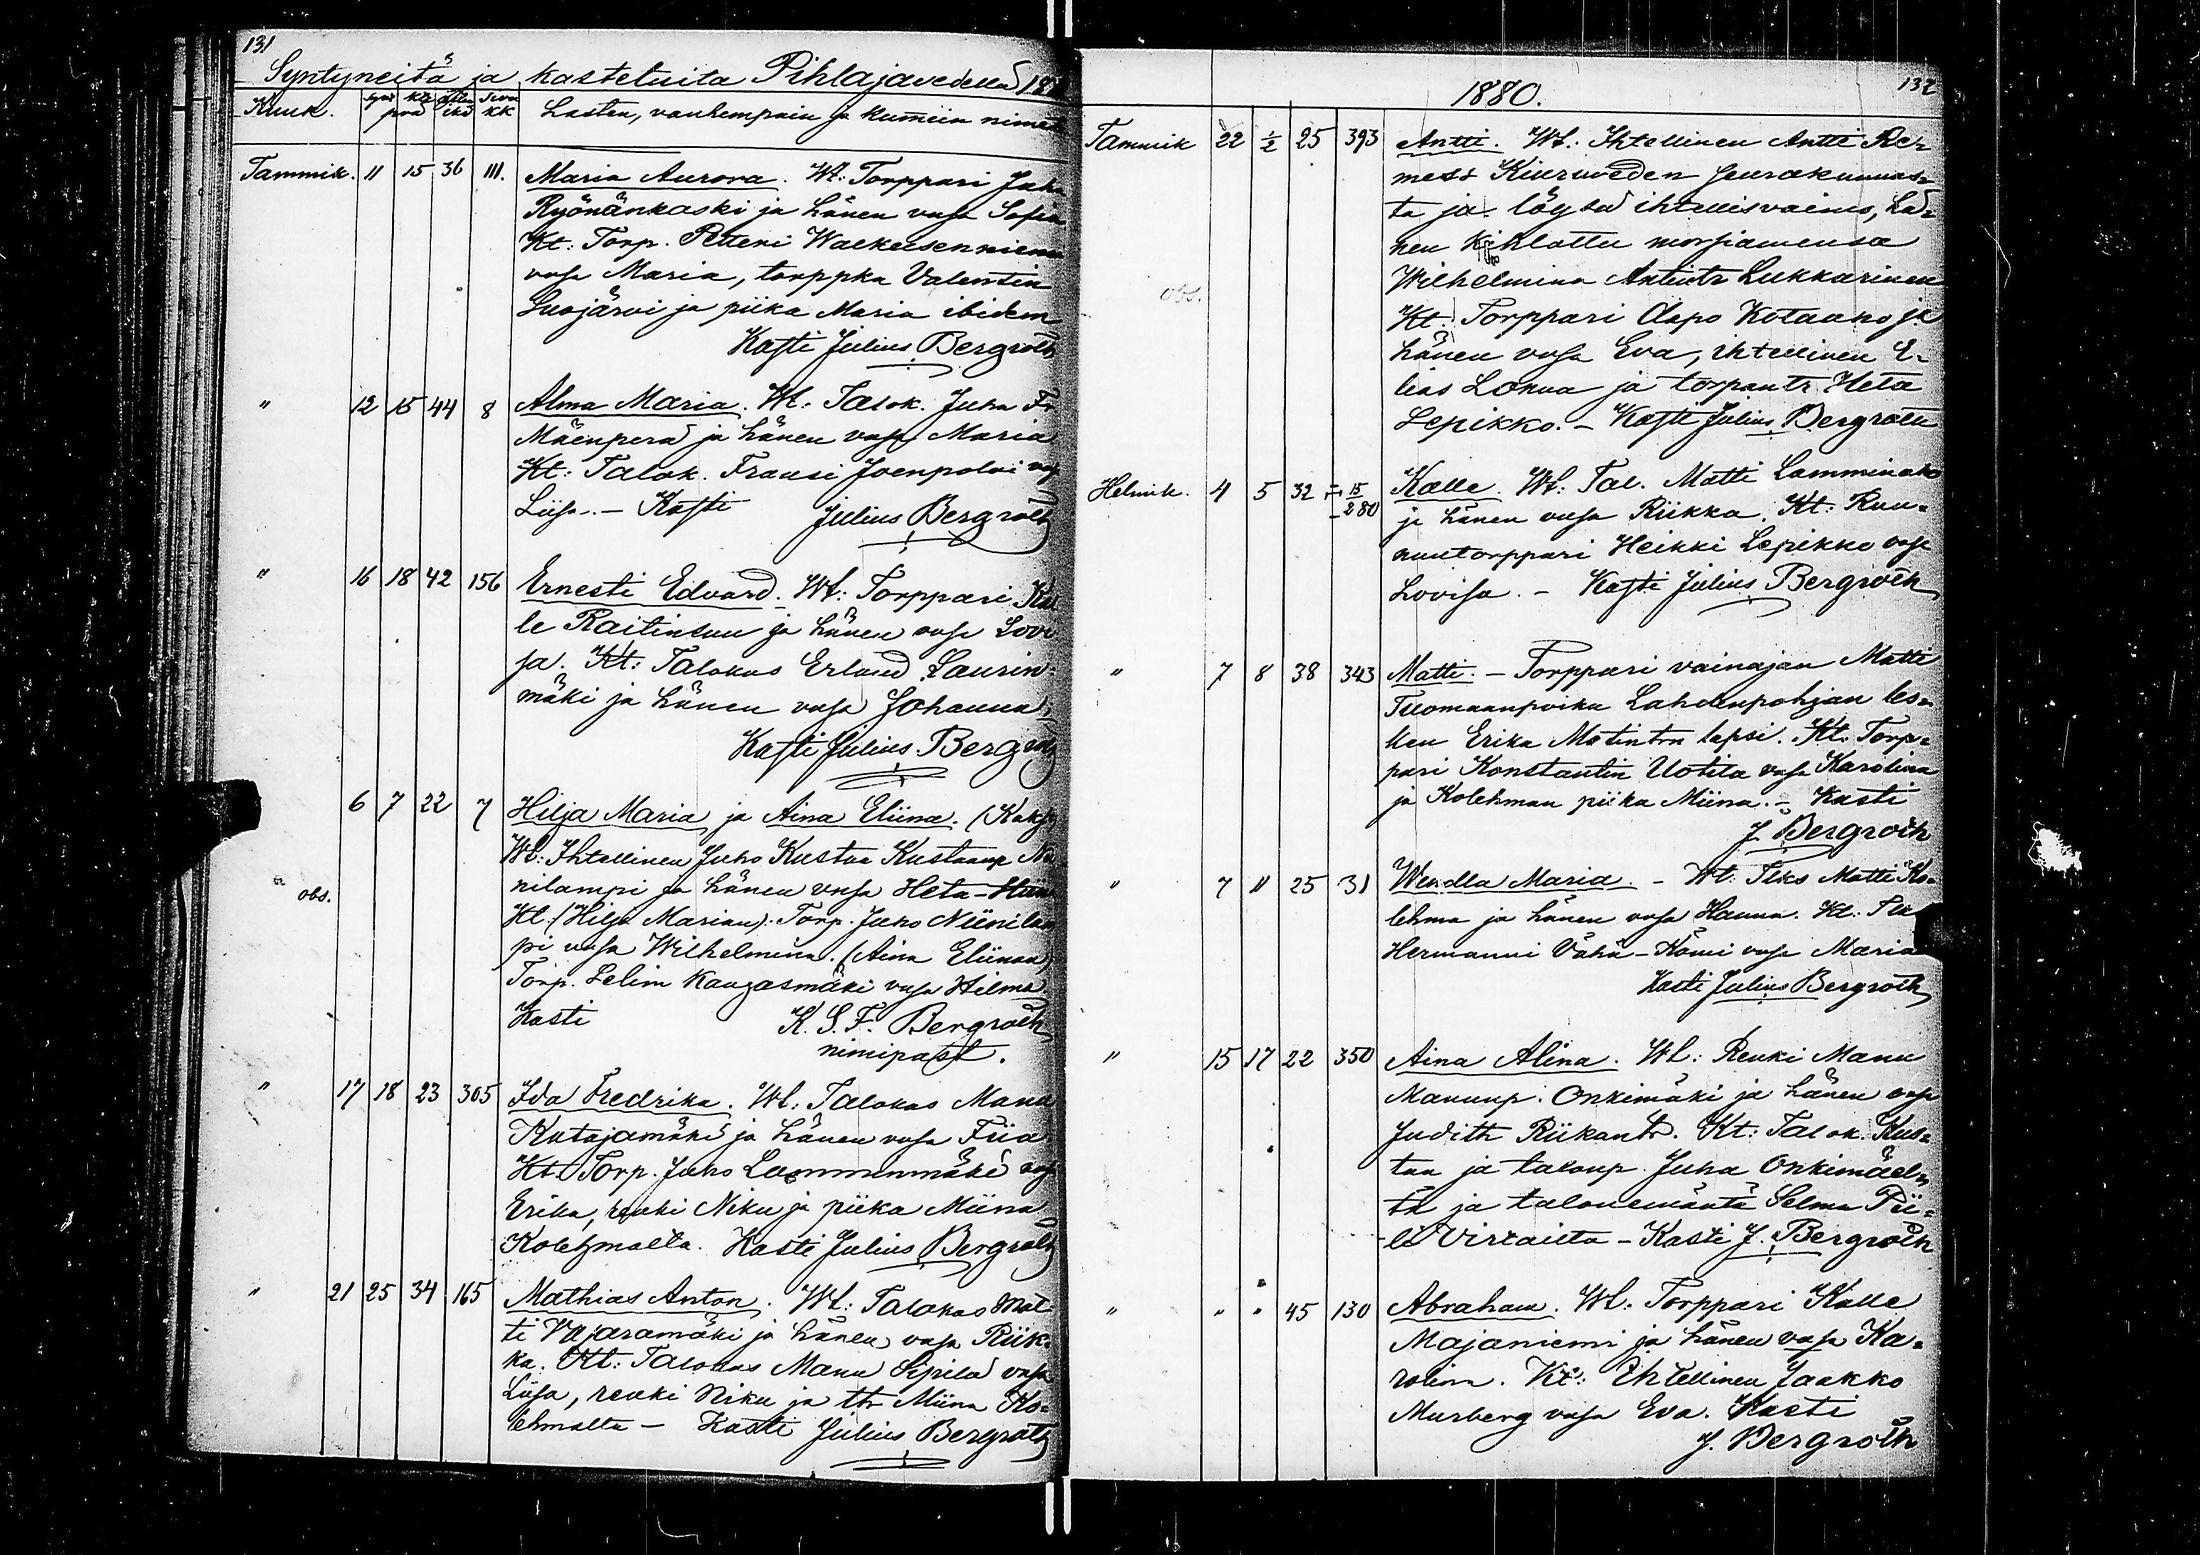 131
Syntyneitä ja kastetuita Pihlajavedellä
Kuuk. Lasten, vanhempain ja kummien nimet
Tammik. 11 15 36 111. Maria Aurora. Wt: Torppari Juha
Ryönänkoski ja hänen vmsa Sofia
Kt: Torp. Petteri Walkeisenniemi
vmsa Maria, torppka Valentin
Suojärvi ja piika Maria ibidem
Kasti Julius Bergroth
" 12 15 44 8 Alma Maria. Wt: Talok. Juha Fr
Mäenperä ja hänen vmsa Maria
Kt: Talok. Fransi Joenpolvi
Liisa. – Kasti Julius Bergroth
" 16 18 42 156 Ernesti Edvard. Wt: Torppari Kal
le Raitinsuu ja hänen vmsa Lovi
sa. Kt: Talokas Erland Laurin=
mäki ja hänen vmsa Johanna
Kasti Julius Bergroth
6 7 22 7 Hilja Maria ja Aina Eliina. (Kaks)
Wt: Ihtellinen Juho Kustaa Kustaanp
nilampi ja hänen vmsa Heta
obs.
Kt: (Hilja Marian): Torp. Juho Niinilam
pi vmsa Wilhelmina. (Aina Eliinan)
Torp. Selim Kangasmäki vmsa Hilma
Kasti K. S. F. Bergroth
nimipast.
" 17 18 23 305 Ida Fredrika. Wt: Talokas Manu
Katajamäki ja hänen vmsa Fiia
Kt: Torp. Juho Lamminmäki
Erika, renki Niku ja piika Miina
Kolehmalta. Kasti Julius Bergroth
" 21 25 34 165 Mathias Anton. Wt: Talokas Mat
ti Vajaramäki ja hänen vmsa Riik=
ka. Kt: Talokas Manu Sipilä vmsa
Liisa, renki Niku ja ttr Miina Ko=
lehmalta – Kasti Julius Bergroth
132
1880.
Tammik 22 1/2 25 393 Antti. Wt: Ihtellinen Antti Re=
mess Kiuruveden seurakunnas=
ta ja löysä ihtellisvaimo, hä=
nen kihlattu morsiamensa
obs.
Wilhelmina Antintr Lukkarinen
Kt: Torppari Aapo Kotaaho ja
hänen vmsa Eva, ihtellinen E=
lias Lokua ja torpantr Heta
Lepikko. – Kasti Julius Bergroth
Helmik. 4 5 32 Kalle. Wt: Tal. Matti Lamminaho
15
2 80
ja hänen vmsa Riikka. Kt: Ruu=
nuntorppari Heikki Lepikko vmsa
Lovisa. – Kasti Julius Bergroth
" 7 8 38 343 Matti. – Torppari vainajan Matti
Tuomaanpoika Lahdenpohjan les=
ken Erika Matintrn lapsi. Kt: Torp=
pari Konstantin Uotila vmsa Karolina
ja Kolehman piika Miina. – Kasti
J. Bergroth
" 7 11 25 31 Wendla Maria. – Wt: Tlks Matti Ko=
lehma ja hänen vmsa Hanna. Kt: Tlk
Hermanni Vähä-Kömi vmsa Maria
Kasti Julius Bergroth
" 15 17 22 350 Aina Alina. Wt: Renki Manu
Manunp. Onkimäki ja hänen vmsa
Judith Riikantr. Kt: Talok. Kus=
taa ja talonp. Juha Onkimäel=
tä ja talonemäntä Selma Pii=
lä Virtaista – Kasti J. Bergroth
" " " 45 130 Abraham. Wt: Torppari Kalle
Majaniemi ja hänen vmsa Ka=
rolina. Kt: Ihtellinen Jaakko
Murberg vmsa Eva. Kasti
J. Bergroth